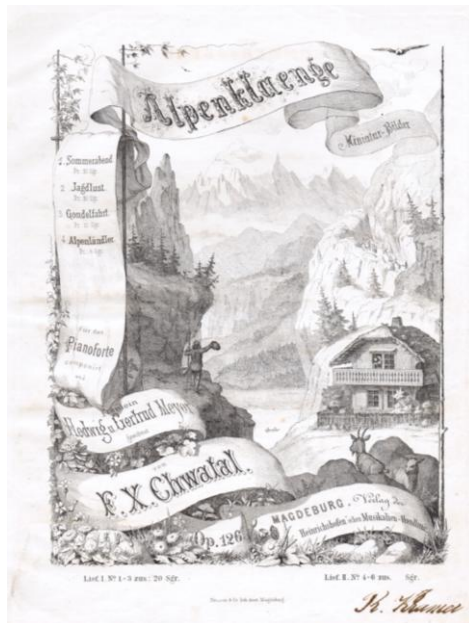 Alpenklaenge
Miniatur-Bilder
1. Sommerabend.
2. Jagdlust.
3. Gondelfahrt.
4. Alpenländler.
für das
Pianoforte
componirt
und
Hedwig u. Gertrud Meyer
von
F. X. Chwatal.
Op. 126.
MAGDEBURG, Verlag der
Heinrichshofen'schen Musikalien-Handlung
Lief. I. No 1-3 zus: 20 Sgr.
Lief. II. No 4-6 zus. Sgr.